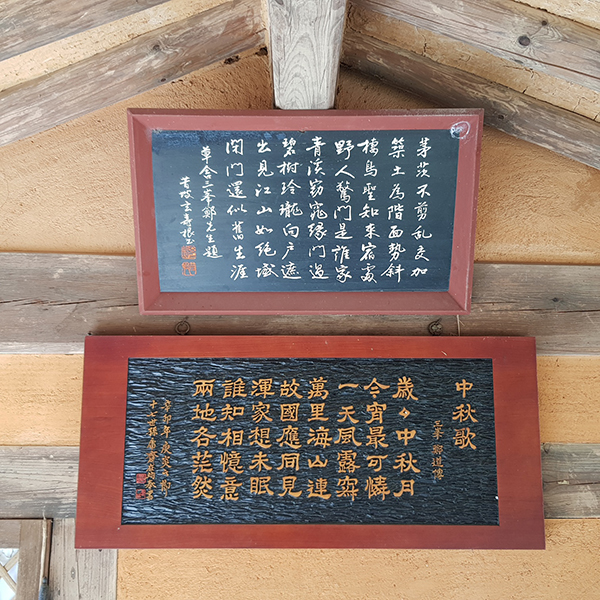 茅茨不剪亂交加
築土為階面勢斜
棲鳥聖知來宿處
野人驚問是誰家
青溪窈窕緣門過
碧樹玲瓏向戶遮
出見江山如絶域
閉門還似舊生涯
草舍三峯鄭先生題
中秋歌
三峯 鄭道傳
歲々中秋月
今宵最可憐
一天風露寂
萬里海山連
故國應同見
渾家想未眠
誰知相憶意
兩地各茫然